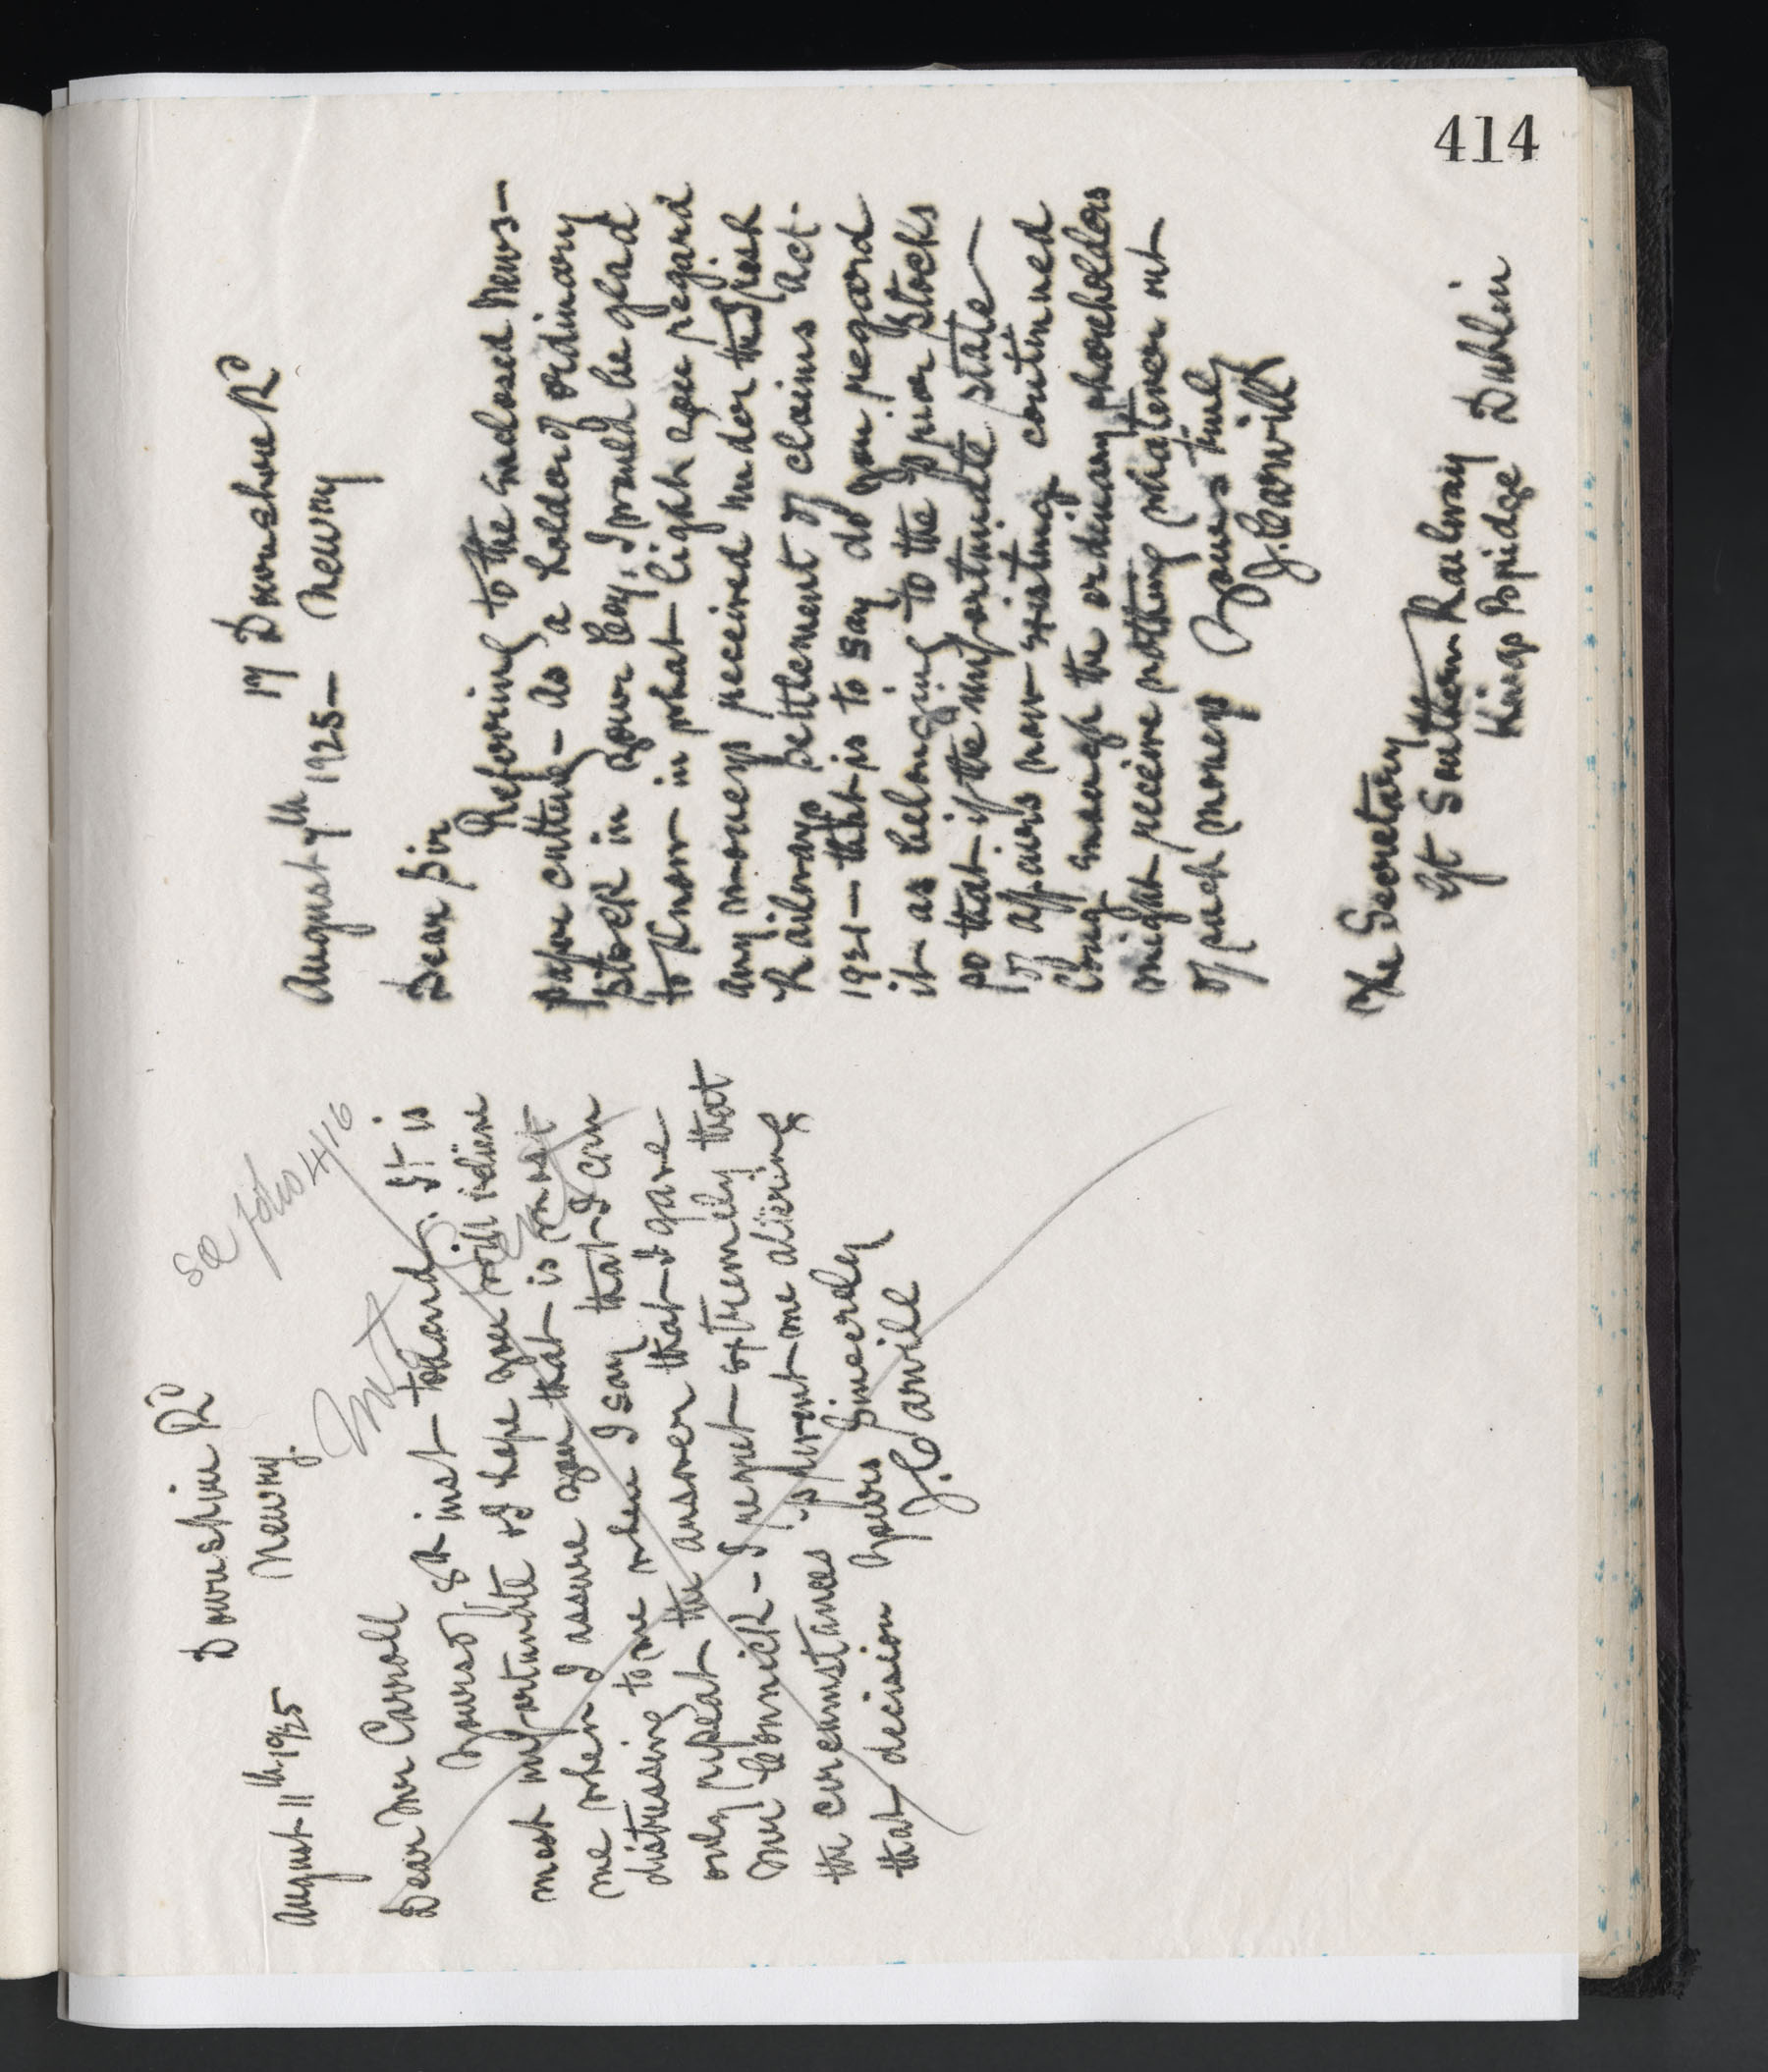 414
Downshire Rd
August 11th 1925 Newry.
see folio 416
not sent
Dear Mr Carroll
Yours of 8th inst to hand. It is
most unfortunate & I hope you will believe
me when I assure you that it is most
distressing to me when I say that I can
only repeat the answer that I gave
Mr Connick - I regret extremely that
the circumstances prevent me altering
that decision Yours Sincerely
J. Carvill
17 Downshire Rd
August 7th 1925 - Newry
Dear Sir
Referring to the enclosed News-
paper cutting - As a holder of ordinary
stock in your Coy, I would be glad
to know in what light you regard
any moneys received under the Irish
Railways Settlement of claims Act.
1921 - that is to say do you regard
it as belonging to the prior stocks
so that if the unfortunate state
of affairs now existing continued
long enough the ordinary shareholders
might receive nothing whatever out
of such moneys Yours truly
J. Carvill
The Secretary
Gt Southern Railway
Kings Bridge Dublin